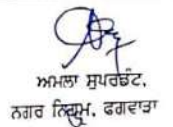 ਅਮਲਾ ਸੁਪਰਡੈਂਟ,
ਨਗਰ ਨਿਗਮ, ਫਗਵਾੜਾ